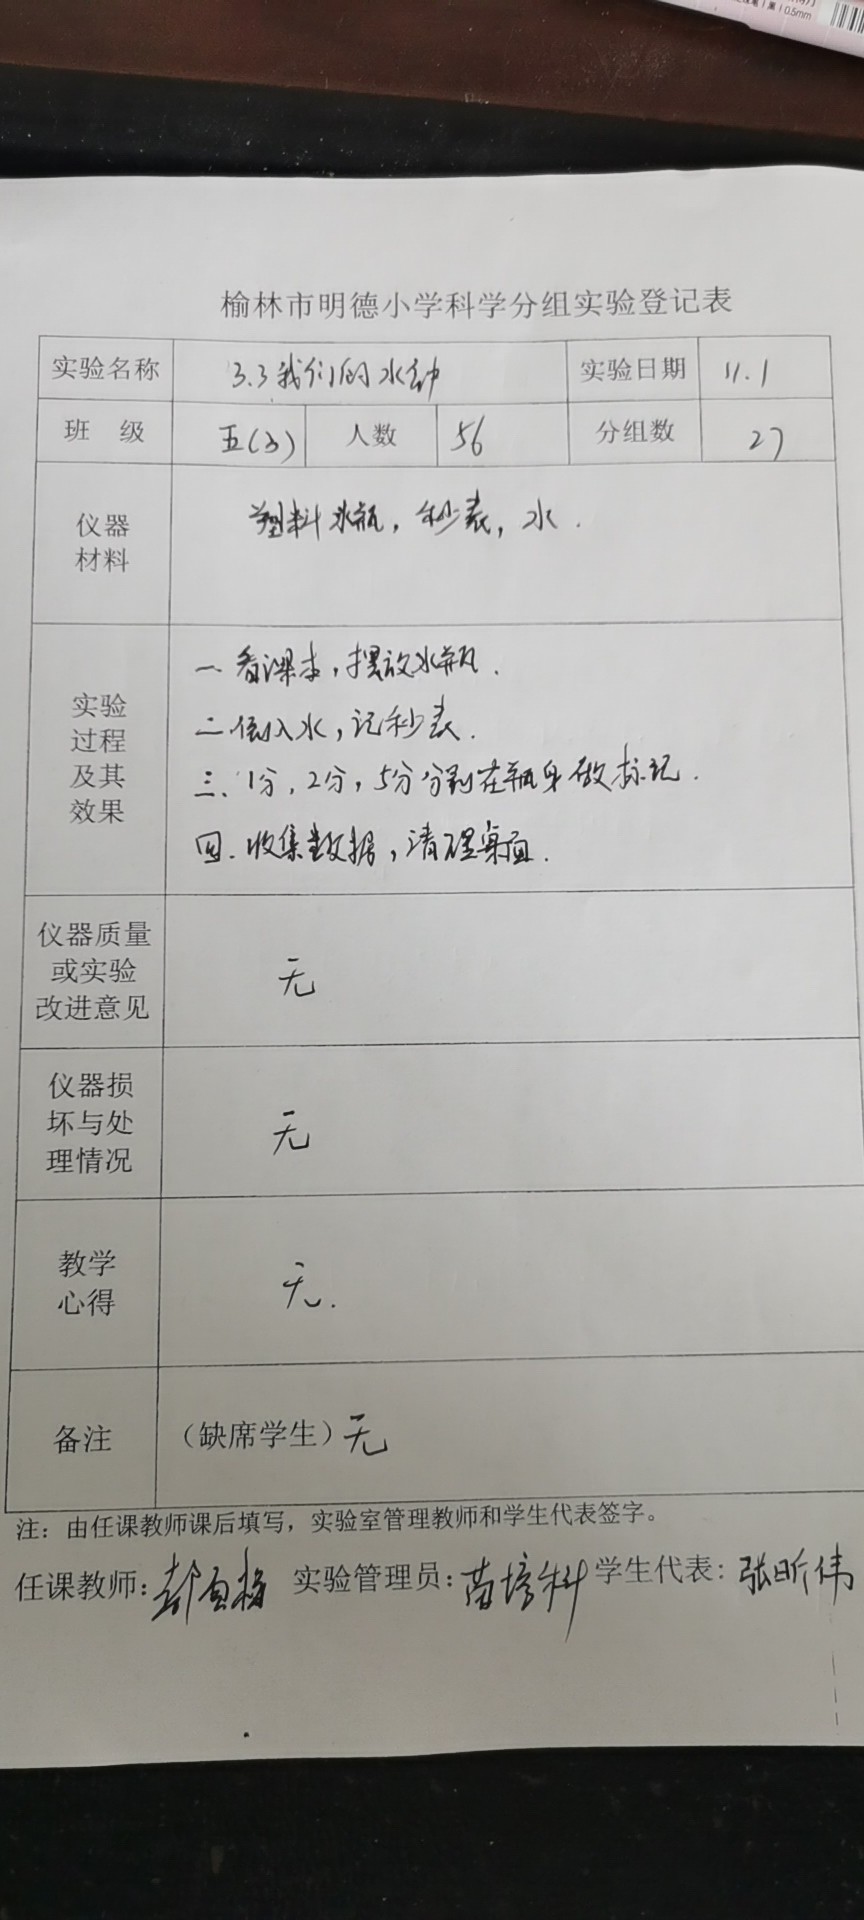 0.5mm
榆林市明德小学科学分组实验登记表
实验名称 3.3我们的水钟 实验日期 11.1
班 级 五(3) 人数 56 分组数 27
仪器
材料
塑料水瓶，秒表，水.
实验
过程
及其
效果
一.看课本，摆放水瓶.
二.倒入水，记秒表.
三、1分，2分，5分分别在瓶身做标记.
四.收集数据，清理桌面.
仪器质量
或实验
改进意见
无
仪器损
坏与处
理情况
无
教学
心得
无.
备注 （缺席学生）无
注：由任课教师课后填写，实验室管理教师和学生代表签字。
任课教师： 实验管理员：苗培科 学生代表：张昕伟